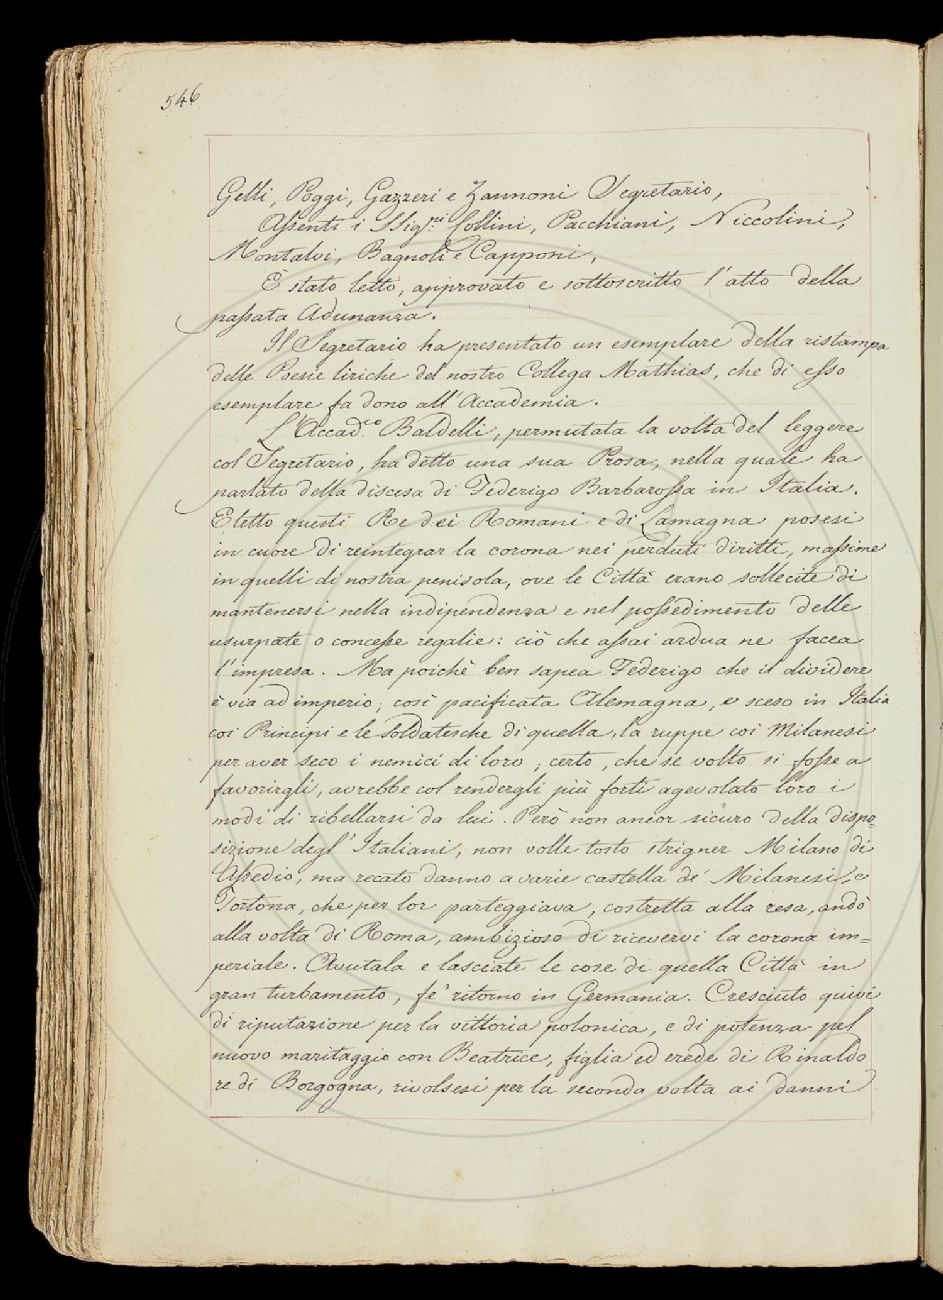 546
Gelli, Poggi, Gazzeri e Zannoni Segretario,
Assenti i SSig.ri Collini, Pacchiani, Niccolini,
Montalvi, Bagnoli e Capponi,
È stato letto, approvato e sottoscritto l'atto della
passata Adunanza.
Il Segretario ha presentato un esemplare della ristampa
delle Poesie liriche del nostro Collega Mathias, che di esso
esemplare fa dono all'Accademia.
L'Accad.co Baldelli, permutata la volta del leggere
col Segretario, ha detto una sua Prosa, nella quale ha
parlato della discesa di Federigo Barbarossa in Italia.
Eletto questi Re dei Romani e di Lamagna posesi
in cuore di reintegrar la corona nei perduti diritti, massime
in quelli di nostra penisola, ove le Città erano sollecite di
mantenersi nella indipendenza e nel possedimento delle
usurpate o concesse regalie: ciò che assai ardua ne facea
l'impresa. Ma poichè ben sapea Federigo che il dividere
è via ad imperio; così pacificata Alemagna, e sceso in Italia
coi Principi e le soldatesche di quella, la ruppe coi Milanesi
per aver seco i nemici di loro; certo, che se volto si fosse a
favorirgli, avrebbe col rendergli più forti agevolato loro i
modi di ribellarsi da lui. Però non ancor sicuro della dispo=
sizione degl'Italiani, non volle tosto strigner Milano di
Assedio, ma recato danno a varie castella de' Milanesi, e
Tortona, che per lor parteggiava, costretta alla resa, andò
alla volta di Roma, ambizioso di ricevervi la corona im=
periale. Avutala e lasciate le cose di quella Città in
gran turbamento, fe' ritorno in Germania. Cresciuto quivi
di riputazione per la vittoria polonica, e di potenza pel
nuovo maritaggio con Beatrice, figlia ed erede di Rinaldo
re di Borgogna, rivolsesi per la seconda volta ai danni